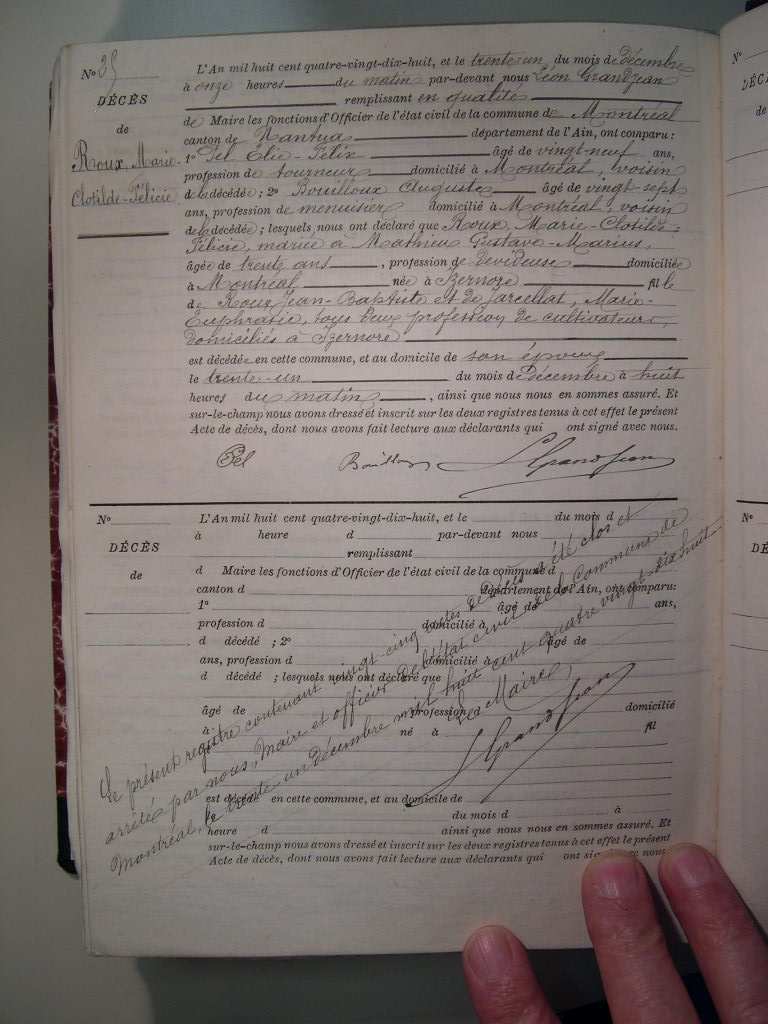 N° 35
DÉCÈS
de
Roux, Marie-
Clotilde-Félicie
L'An mil huit cent quatre-vingt-dix-huit, et le trente un du mois de décembre
à onze heures du matin par-devant nous Léon Grandjean
remplissant en qualité
de Maire les fonctions d'Officier de l'état civil de la commune de Montréal
canton de Nantua département de l'Ain, ont comparu:
1° Pel Élie-Félix âgé de vingt neuf ans,
profession de tourneur domicilié à Montréal, voisin
de la décédée; 2° Bouilloux Auguste âgé de vingt sept
ans, profession de menuisier domicilié à Montréal, voisin
de la décédée; lesquels nous ont déclaré que Roux, Marie-Clotilde-
Félicie, mariée à Mathieu Gustave-Marius,
âgée de trente ans, profession de dévideuse domiciliée
à Montréal née à Izernore fille
de Roux Jean-Baptiste et de Marie-
Euphrasie, tous deux profession de cultivateurs,
domiciliés à Izernore
est décédée en cette commune, et au domicile de son époux
le trente-un du mois de Décembre à huit
heures du matin, ainsi que nous nous en sommes assuré. Et
sur-le-champ nous avons dressé et inscrit sur les deux registres tenus à cet effet le présent
Acte de décès, dont nous avons fait lecture aux déclarants qui ont signé avec nous.
Pel Bouilloux L Grandjean
N°
DÉCÈS
de
L'An mil huit cent quatre-vingt-dix-huit, et le du mois d
à heure d par-devant nous
remplissant
d Maire les fonctions d'Officier de l'état civil de la commune d
canton d département de l'Ain, ont comparu:
1° âgé de ans,
profession d domicilié à
d décédé ; 2° âgé de
ans, profession d domicilié à
d décédé ; lesquels nous ont déclaré que
âgé de profession d domicilié
à né à fil
est décédé en cette commune, et au domicile de
du mois d à
heure d ainsi que nous nous en sommes assuré. Et
sur-le-champ nous avons dressé et inscrit sur les deux registres tenus à cet effet le présent
Acte de décès, dont nous avons fait lecture aux déclarants qui ont signé avec nous.
Le présent registre contenant vingt-cinq actes de décès a été clos et
arrêté par nous, Maire et officier de l'état civil de la Commune de
Montréal, le trente un décembre mil huit cent quatre vingt dix huit
Le Maire,
L Grandjean
N°
DÉCÈS
de
N°
DÉCÈS
de